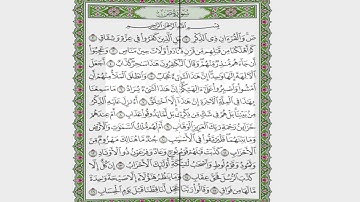 سورة ص
بسم الله الرحمن الرحيم
صٓ وَٱلْقُرْءَانِ ذِي ٱلذِّكْرِ ۝ بَلِ ٱلَّذِينَ كَفَرُوا۟ فِي عِزَّةٍ وَشِقَاقٍ ۝
كَمْ أَهْلَكْنَا مِن قَبْلِهِم مِّن قَرْنٍ فَنَادَوا۟ وَّلَاتَ حِينَ مَنَاصٍ ۝ وَعَجِبُوٓا۟
أَن جَآءَهُم مُّنذِرٌ مِّنْهُمْ وَقَالَ ٱلْكَٰفِرُونَ هَٰذَا سَٰحِرٌ كَذَّابٌ ۝ أَجَعَلَ
ٱلْءَالِهَةَ إِلَٰهًا وَٰحِدًا إِنَّ هَٰذَا لَشَيْءٌ عُجَابٌ ۝ وَٱنطَلَقَ ٱلْمَلَأُ مِنْهُمْ أَنِ
ٱمْشُوا۟ وَٱصْبِرُوا۟ عَلَىٰٓ ءَالِهَتِكُمْ إِنَّ هَٰذَا لَشَيْءٌ يُرَادُ ۝ مَا سَمِعْنَا
بِهَٰذَا فِي ٱلْمِلَّةِ ٱلْءَاخِرَةِ إِنْ هَٰذَآ إِلَّا ٱخْتِلَٰقٌ ۝ أَءُنزِلَ عَلَيْهِ ٱلذِّكْرُ
مِنۢ بَيْنِنَا بَلْ هُمْ فِي شَكٍّ مِّن ذِكْرِي بَل لَّمَّا يَذُوقُوا۟ عَذَابِ ۝ أَمْ عِندَهُمْ
خَزَآئِنُ رَحْمَةِ رَبِّكَ ٱلْعَزِيزِ ٱلْوَهَّابِ ۝ أَمْ لَهُم مُّلْكُ ٱلسَّمَٰوَٰتِ وَٱلْأَرْضِ
وَمَا بَيْنَهُمَا فَلْيَرْتَقُوا۟ فِي ٱلْأَسْبَٰبِ ۝ جُندٌ مَّا هُنَالِكَ مَهْزُومٌ مِّنَ
ٱلْأَحْزَابِ ۝ كَذَّبَتْ قَبْلَهُمْ قَوْمُ نُوحٍ وَعَادٌ وَفِرْعَوْنُ ذُو ٱلْأَوْتَادِ ۝
وَثَمُودُ وَقَوْمُ لُوطٍ وَأَصْحَٰبُ لْـَٔيْكَةِ أُو۟لَٰٓئِكَ ٱلْأَحْزَابُ ۝ إِن كُلٌّ إِلَّا
كَذَّبَ ٱلرُّسُلَ فَحَقَّ عِقَابِ ۝ وَمَا يَنظُرُ هَٰٓؤُلَآءِ إِلَّا صَيْحَةً وَٰحِدَةً
مَّا لَهَا مِن فَوَاقٍ ۝ وَقَالُوا۟ رَبَّنَا عَجِّل لَّنَا قِطَّنَا قَبْلَ يَوْمِ ٱلْحِسَابِ ۝